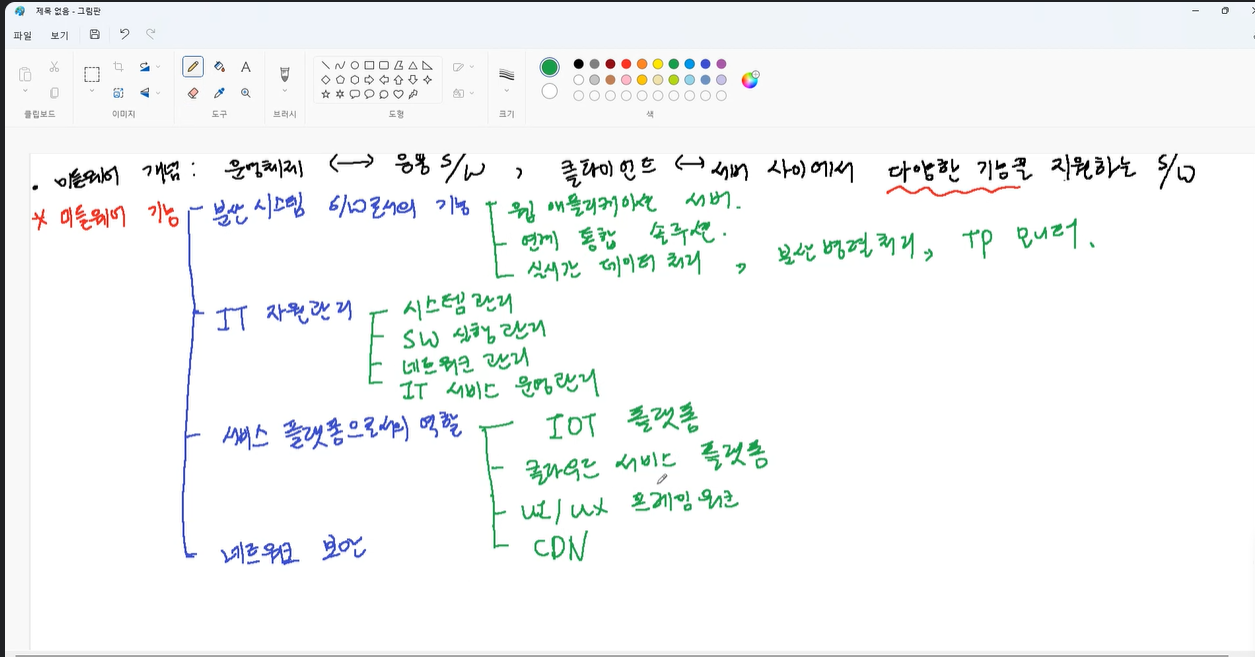 제목 없음 - 그림판
파일 보기
클립보드 이미지 도구 브러시 도형 크기 색
• 미들웨어 개념 : 운영체제 ↔ 응용 S/W , 클라이언트 ↔ 서버 사이에서 다양한 기능을 지원하는 S/W
* 미들웨어 기능
분산 시스템 S/W로서의 기능
웹 애플리케이션 서버.
연계 통합 솔루션.
실시간 데이터 처리 , 분산병렬처리, TP 모니터.
IT 자원관리
시스템 관리
SW 실행 관리
네트워크 관리
IT 서비스 운영관리
서비스 플랫폼으로서의 역할
IOT 플랫폼
클라우드 서비스 플랫폼
UI/UX 프레임워크
CDN
네트워크 보안